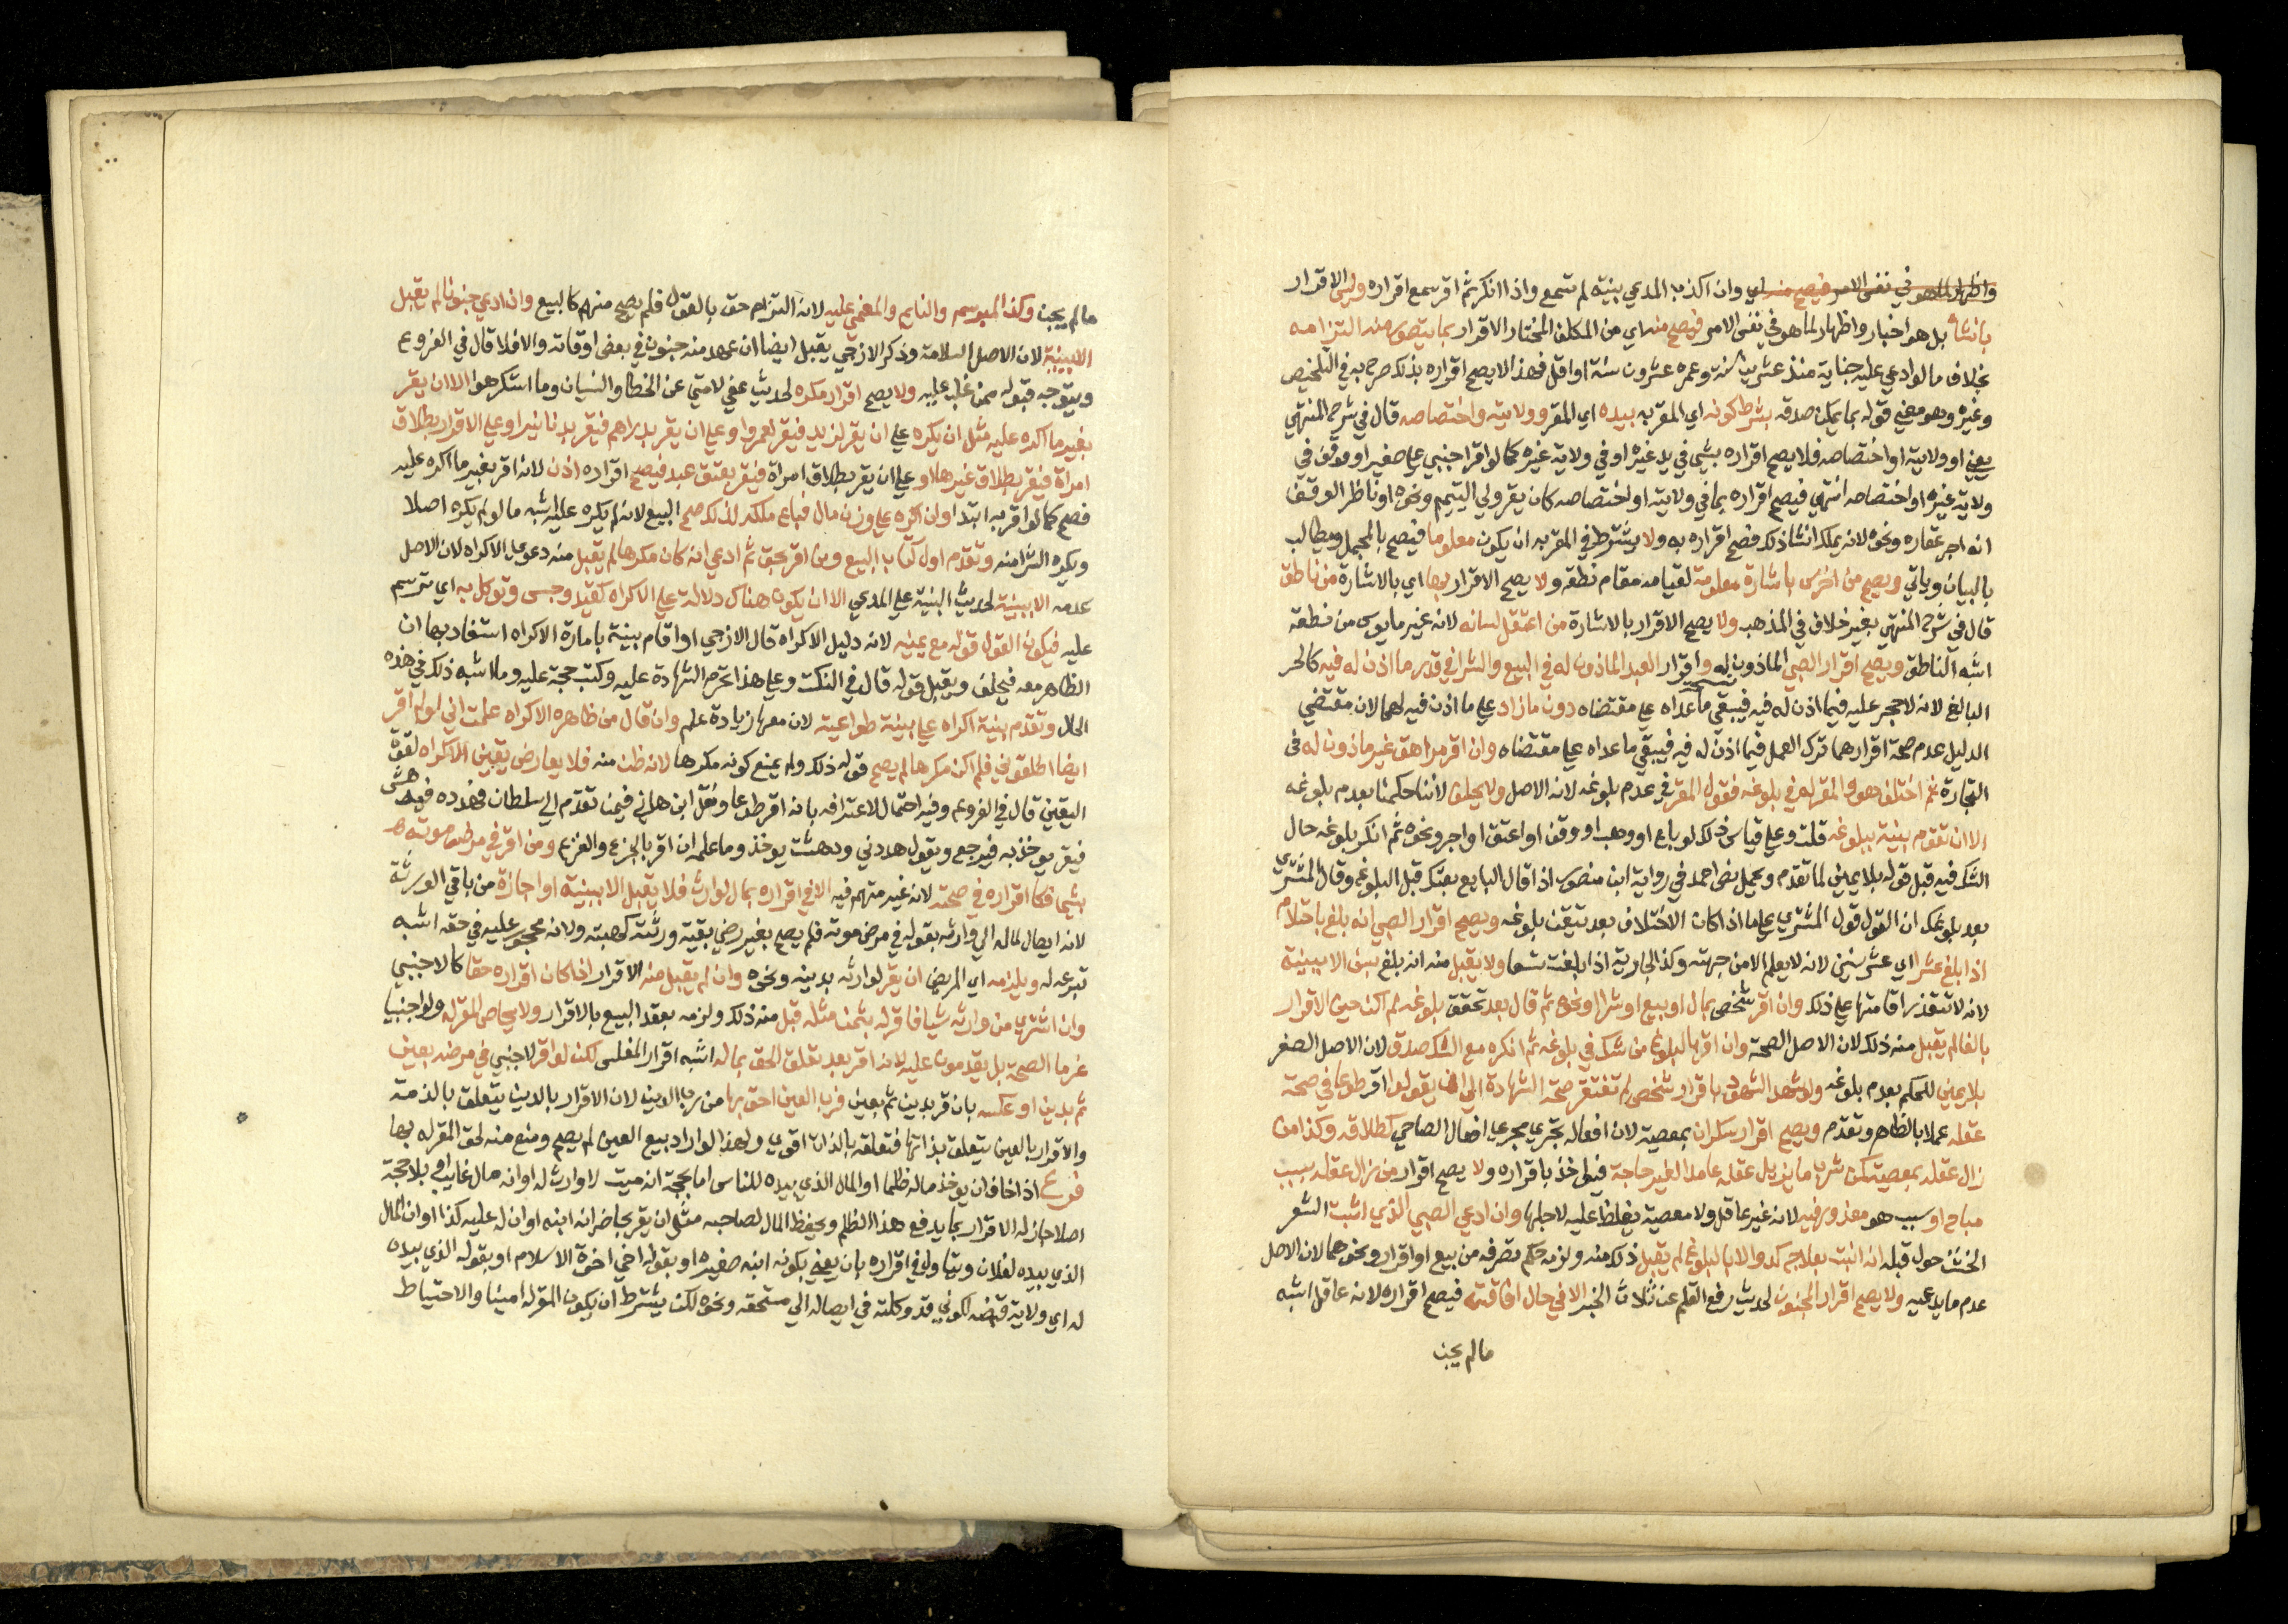 واظهار لما هو في نفس الامر فيصح منه اي وان اكذب المدعي بينته لم تسمع واذا انكر ثم اقر سمع اقراره وليس الاقرار
بانشاء بل هو اخبار واظهار لما هو في نفس الامر فيصح منه اي من المكلف المختار الاقرار بما يتصور منه التزامه
بخلاف ما لو ادعي عليه جناية منذ عشرين سنة وعمره عشرون سنة او اقل فهذا لا يصح اقراره بذلك صرح به في التلخيص
وغيره وهو معني قوله بما يمكن صدقه بشرط كونه اي المقر به بيده اي المقر وولايته واختصاصه قال في شرح المنتهي
يعني او ولايته او اختصاصه فلا يصح اقراره بشي في يد غيره او في ولاية غيره كما لو اقر اجنبي علي صغير او وقف في
ولاية غيره او اختصاصه انتهي فيصح اقراره بما في ولايته او اختصاصه كان يقر ولي اليتيم ونحوه او ناظر الوقف
انه اجر عقاره ونحوه لانه يملك انشا ذلك فصح اقراره به ولا يشترط في المقر به ان يكون معلوما فيصح بالمجمل ويطالب
بالبيان وياتي ويصح من اخرس باشارة معلومة لقيامه مقام نطقه ولا يصح الاقرار بها اي بالاشارة من ناطق
قال في شرح المنتهي بغير خلاف في المذهب ولا يصح الاقرار بالاشارة من اعتقل لسانه لانه غير مايوس من نطقه
اشبه الناطق ويصح اقرار الصبي الماذون له واقرار العبد الماذون له في البيع والشرا في قدر ما اذن له فيه كالحر
البالغ لانه لا حجر عليه فيما اذن له فيه فيبقي ما عداه علي مقتضاه دون ما زاد علي ما اذن فيه لهما لان مقتضي
الدليل عدم صحة اقرارهما ترك العمل فيما اذن له فيه فيبقي ما عداه علي مقتضاه وان اقر مراهق غير ماذون له في
التجارة ثم اختلف هو والمقر له في بلوغه فقول المقر في عدم بلوغه لانه الاصل ولا يحلف لاننا حكمنا بعدم بلوغه
الا ان تقوم بينة ببلوغه قلت وعلي قياس ذلك لو باع او وهب او وقف او اعتق او اجر ونحوه ثم انكر بلوغه حال
الشك فيه قبل قوله بلا يمين لما تقدم ويحمل نص احمد في رواية ابن منصور اذا قال البايع بعتك قبل البلوغ وقال المشتري
بعد بلوغك ان القول قول المشتري علي ما اذا كان الاختلاف بعد تيقن بلوغه ويصح اقرار الصبي انه بلغ باحتلام
اذا بلغ عشرا اي عشر سنين لانه لا يعلم الا من جهته وكذا الجارية اذا بلغت تسعا ولا يقبل منه انه بلغ بسن الا ببينة
لانه لا تتعذر اقامتها علي ذلك وان اقر شخص بمال او بيع او شرا او نحوه ثم قال بعد تحقق بلوغه لم اكن حين الاقرار
بالغا لم يقبل منه ذلك لان الاصل الصحة وان اقر بالبلوغ من شك في بلوغه ثم انكره مع الشك صدق لان الاصل الصغر
بلا يمين للحكم بعدم بلوغه ولو شهد الشهود باقرار شخص لم تفتقر صحة الشهادة الي ان يقولوا اقر طوعا في صحة
عقله عملا بالظاهر وتقدم ويصح اقرار سكران بمعصية لان افعاله تجري مجري افعال الصاحي كطلاقه وكذا من
زال عقله بمعصية كمن شرب ما يزيل عقله عامدا لغير حاجة فيواخذ باقراره ولا يصح اقرار من زال عقله بسبب
مباح او سبب هو معذور فيه لانه غير عاقل ولا معصية يغلظ عليه لاجلها وان ادعي الصبي الذي انبت الشعر
الخشن حول قبله انه انبت بعلاج كدوا لا بالبلوغ لم يقبل ذلك منه ولزمه حكم تصرفه من بيع او اقرار ونحوهما لان الاصل
عدم ما يدعيه ولا يصح اقرار المجنون لحديث رفع القلم عن ثلاث الخبر الا في حال افاقته فيصح اقراره لانه عاقل اشبه
مالم يجن
مالم يجن وكذا المبرسم والنايم والمغمي عليه لانه التزام حق بالقول فلم يصح منهم كالبيع وان ادعي جنونا لم يقبل
الا ببينة لان الاصل السلامة وذكر الازجي يقبل ايضا ان عهد منه جنون في بعض اوقاته والا فلا قال في الفروع
ويتوجه قبوله ممن غلب عليه ولا يصح اقرار مكره لحديث عفي لامتي عن الخطا والنسيان وما استكرهوا الا ان يقر
بغير ما اكره عليه مثل ان يكره علي ان يقر لزيد فيقر لعمرو او علي ان يقر بدراهم فيقر بدنانير او علي الاقرار بطلاق
امراة فيقر بطلاق غيرها او علي ان يقر بطلاق امراة فيقر بعتق عبد فيصح اقراره اذن لانه اقر بغير ما اكره عليه
فصح كما لو اقر به ابتدا ولو اكره علي وزن مال فباع ملكه لذلك صح البيع لانه لم يكره عليه اشبه ما لو لم يكره اصلا
ويكره الشرا منه وتقدم اول كتاب البيع ومن اقر بحق ثم ادعي انه كان مكرها لم يقبل منه دعوي الاكراه لان الاصل
عدمه الا ببينة لحديث البينة علي المدعي الا ان يكون هناك دلالة علي الاكراه كقيد وحبس وتوكل به اي ترسيم
عليه فيكون القول قوله مع يمينه لانه دليل الاكراه قال الازجي لو اقام بينة بامارة الاكراه استفاد بها ان
الظاهر معه فيحلف ويقبل قوله قال في النكت وعلي هذا تحرم الشهادة عليه وكتب حجة عليه وما اشبه ذلك في هذه
الحال وتقدم بينة اكراه علي بينة طواعية لان معها زيادة علم وان قال من ظاهره الاكراه علمت اني لو لم اقر
ايضا اطلقوني فلم اكن مكرها لم يصح قوله ذلك ولم يمنع كونه مكرها لانه ظن منه فلا يعارض يقين الاكراه لقوة
اليقين قال في الفروع وفيه احتمال لاعترافه بانه اقر طوعا ونقل ابن هاني فيمن تقدم الي سلطان فهدده فيدهش
فيقر يوخذ به فيرجع ويقول هددني ودهشت يوخذ وما علمه ان اقر بالجزع والفزع ومن اقر في مرض موته
بشي فكاقراره في صحته لانه غير متهم فيه الا في اقراره بمال لوارث فلا يقبل الا ببينة او اجازة من باقي الورثة
لانه ايصال لماله الي وارثه بقوله في مرض موته فلم يصح بغير رضي بقية ورثته كهبته ولانه محجور عليه في حقه اشبه
تبرعه له ويلزمه اي المريض ان يقر لوارثه بدينه ونحوه وان لم يقبل منه الاقرار اذا كان اقراره حقا كالاجنبي
وان اشتري من وارثه شيا فاقر له بثمن مثله قبل منه ذلك ولزمه بعقد البيع بالاقرار ولا يحاص المقر له ولو اجنبيا
غرما الصحة بل يقدمون عليه لانه اقر بعد تعلق الحق بماله اشبه اقرار المفلس لكن لو اقر لاجنبي في مرضه بعين
ثم بدين او عكسه بان قر بدين ثم بعين فرب العين احق بها من رب الدين لان الاقرار بالدين يتعلق بالذمة
والاقرار بالعين يتعلق بذاتها فتعلقه بالذات اقوي ولهذا لو اراد بيع العين لم يصح ومنع منه لحق المقر له بها
فرع اذا خاف ان يوخذ ماله ظلما او المال الذي بيده للناس اما بحجة انه ميت لا وارث له او انه مال غايب او بلا حجة
اصلا جاز له الاقرار بما يدفع هذا الظلم ويحفظ المال لصاحبه مثل ان يقر بحاضر انه ابنه او ان له عليه كذا او ان المال
الذي بيده لفلان ويتاول في اقراره بان يعني بكونه ابنه صغيره او بقوله اخي اخوة الاسلام او بقوله الذي بيده
له اي ولاية قبضه لكوني قد وكلته في ايصاله الي مستحقه ونحوه لكن يشترط ان يكون المقر له امينا والاحتياط